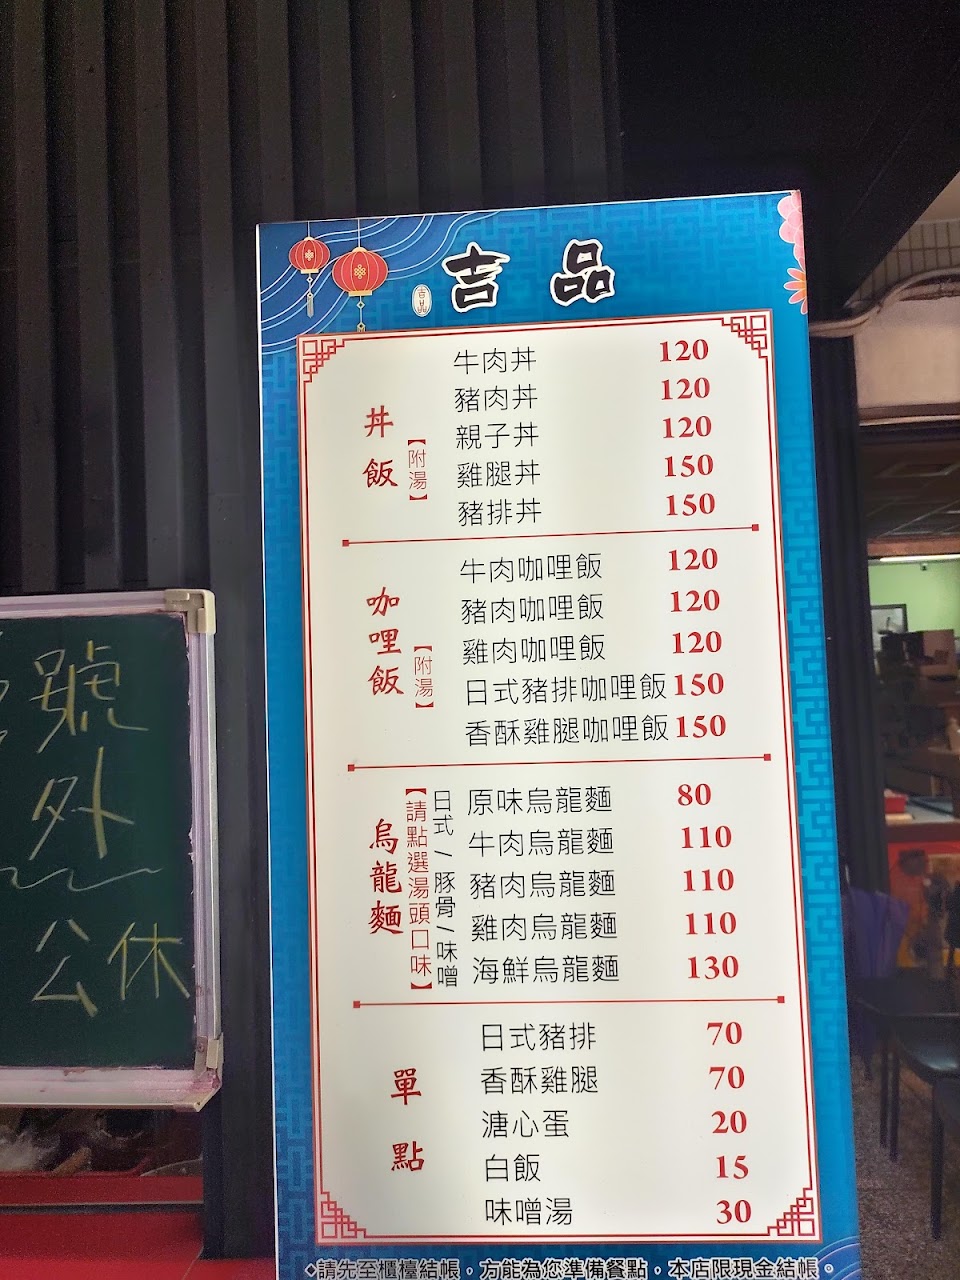 吉品
吉品
丼飯
【附湯】
牛肉丼 120
豬肉丼 120
親子丼 120
雞腿丼 150
豬排丼 150
咖哩飯
【附湯】
牛肉咖哩飯 120
豬肉咖哩飯 120
雞肉咖哩飯 120
日式豬排咖哩飯 150
香酥雞腿咖哩飯 150
烏龍麵
【請點選湯頭口味】
日式/豚骨/味噌
原味烏龍麵 80
牛肉烏龍麵 110
豬肉烏龍麵 110
雞肉烏龍麵 110
海鮮烏龍麵 130
單點
日式豬排 70
香酥雞腿 70
溏心蛋 20
白飯 15
味噌湯 30
◇請先至櫃檯結帳，方能為您準備餐點，本店限現金結帳。
號外
公休